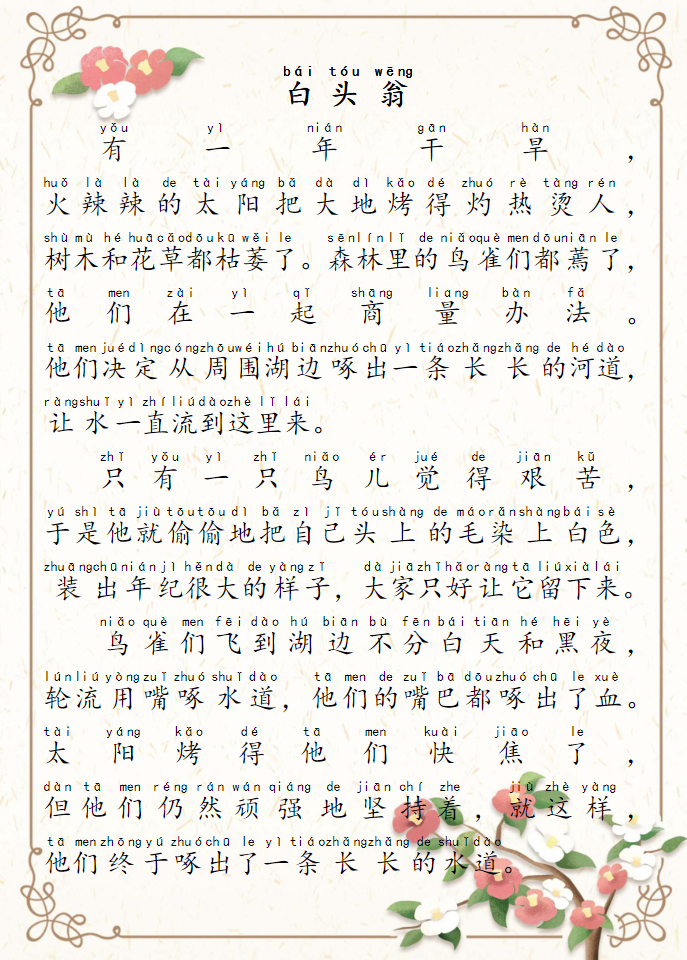 bái tóu wēng
白头翁
yǒu yì nián gān hàn
有一年干旱，
huǒ là là de tài yáng bǎ dà dì kǎo dé zhuó rè tàng rén
火辣辣的太阳把大地烤得灼热烫人，
shù mù hé huā cǎo dōu kū wěi le sēn lín lǐ de niǎo què men dōu niān le
树木和花草都枯萎了。森林里的鸟雀们都蔫了，
tā men zài yì qǐ shāng liang bàn fǎ
他们在一起商量办法。
tā men jué dìng cóng zhōu wéi hú biān zhuó chū yì tiáo zhǎng zhǎng de hé dào
他们决定从周围湖边啄出一条长长的河道，
ràng shuǐ yì zhí liú dào zhè lǐ lái
让水一直流到这里来。
zhǐ yǒu yì zhī niǎo ér jué de jiān kǔ
只有一只鸟儿觉得艰苦，
yú shì tā jiù tōu tōu dì bǎ zì jǐ tóu shàng de máo rǎn shàng bái sè
于是他就偷偷地把自己头上的毛染上白色，
zhuāng chū nián jì hěn dà de yàng zǐ dà jiā zhǐ hǎo ràng tā liú xià lái
装出年纪很大的样子，大家只好让它留下来。
niǎo què men fēi dào hú biān bù fēn bái tiān hé hēi yè
鸟雀们飞到湖边不分白天和黑夜，
lún liú yòng zuǐ zhuó shuǐ dào tā men de zuǐ bā dōu zhuó chū le xuè
轮流用嘴啄水道，他们的嘴巴都啄出了血。
tài yáng kǎo dé tā men kuài jiāo le
太阳烤得他们快焦了，
dàn tā men réng rán wán qiáng de jiān chí zhe jiù zhè yàng
但他们仍然顽强地坚持着，就这样，
tā men zhōng yú zhuó chū le yì tiáo zhǎng zhǎng de shuǐ dào
他们终于啄出了一条长长的水道。